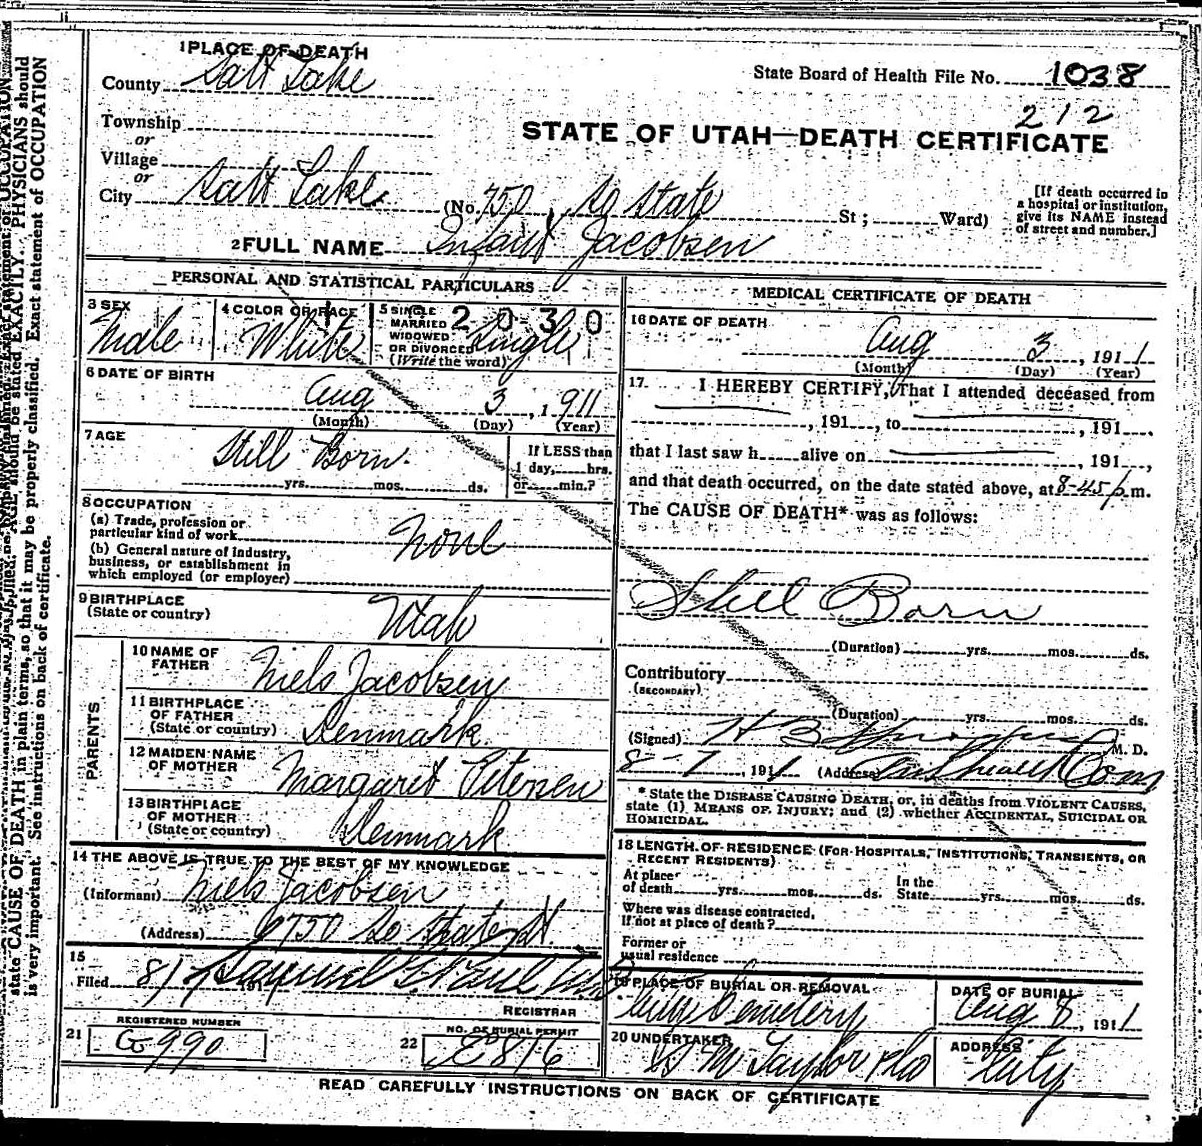 1 PLACE OF DEATH
County Salt Lake
State Board of Health File No. 1038
212
Township
or
Village
or
City Salt Lake
STATE OF UTAH—DEATH CERTIFICATE
(No. 750, So State St; Ward)
[If death occurred in
a hospital or institution,
give its NAME instead
of street and number.]
2 FULL NAME Infant Jacobsen
PERSONAL AND STATISTICAL PARTICULARS
3 SEX
Male
4 COLOR OR RACE
White
5 SINGLE
MARRIED
WIDOWED
OR DIVORCED
(Write the word)
Single
2030
6 DATE OF BIRTH
Aug 3, 1911
(Month) (Day) (Year)
7 AGE
Still Born.
yrs. mos. ds.
If LESS than
1 day, hrs.
or min.?
8 OCCUPATION
(a) Trade, profession or
particular kind of work
(b) General nature of industry,
business, or establishment in
which employed (or employer)
None
9 BIRTHPLACE
(State or country)
Utah
PARENTS
10 NAME OF
FATHER
Niels Jacobsen
11 BIRTHPLACE
OF FATHER
(State or country)
Denmark
12 MAIDEN NAME
OF MOTHER
Margaret Petersen
13 BIRTHPLACE
OF MOTHER
(State or country)
Denmark
14 THE ABOVE IS TRUE TO THE BEST OF MY KNOWLEDGE
(Informant) Niels Jacobsen
(Address) 750 So State St.
15
Filed 8/
REGISTRAR
21
REGISTERED NUMBER
G 990
22
NO. OF BURIAL PERMIT
E816
MEDICAL CERTIFICATE OF DEATH
16 DATE OF DEATH
Aug 3, 1911
(Month) (Day) (Year)
17. I HEREBY CERTIFY, That I attended deceased from
, 191 , to , 191 ,
that I last saw h alive on , 191 ,
and that death occurred, on the date stated above, at 8-45 p m.
The CAUSE OF DEATH* was as follows:
Still Born
(Duration) yrs. mos. ds.
Contributory
(SECONDARY)
(Duration) yrs. mos. ds.
(Signed) H B M. D.
8-7, 1911 (Address) Health Com
* State the DISEASE CAUSING DEATH, or, in deaths from VIOLENT CAUSES,
state (1) MEANS OF INJURY; and (2) whether ACCIDENTAL, SUICIDAL OR
HOMICIDAL.
18 LENGTH OF RESIDENCE (FOR HOSPITALS, INSTITUTIONS, TRANSIENTS, OR
RECENT RESIDENTS)
At place
of death yrs. mos. ds.
In the
State yrs. mos. ds.
Where was disease contracted,
if not at place of death?
Former or
usual residence
19 PLACE OF BURIAL OR REMOVAL
City Cemetery
DATE OF BURIAL
Aug 8, 1911
20 UNDERTAKER
S M Taylor & Co
ADDRESS
City
READ CAREFULLY INSTRUCTIONS ON BACK OF CERTIFICATE
PHYSICIANS should
state CAUSE OF DEATH in plain terms, so that it may be properly classified. Exact statement of OCCUPATION
is very important. See instructions on back of certificate.